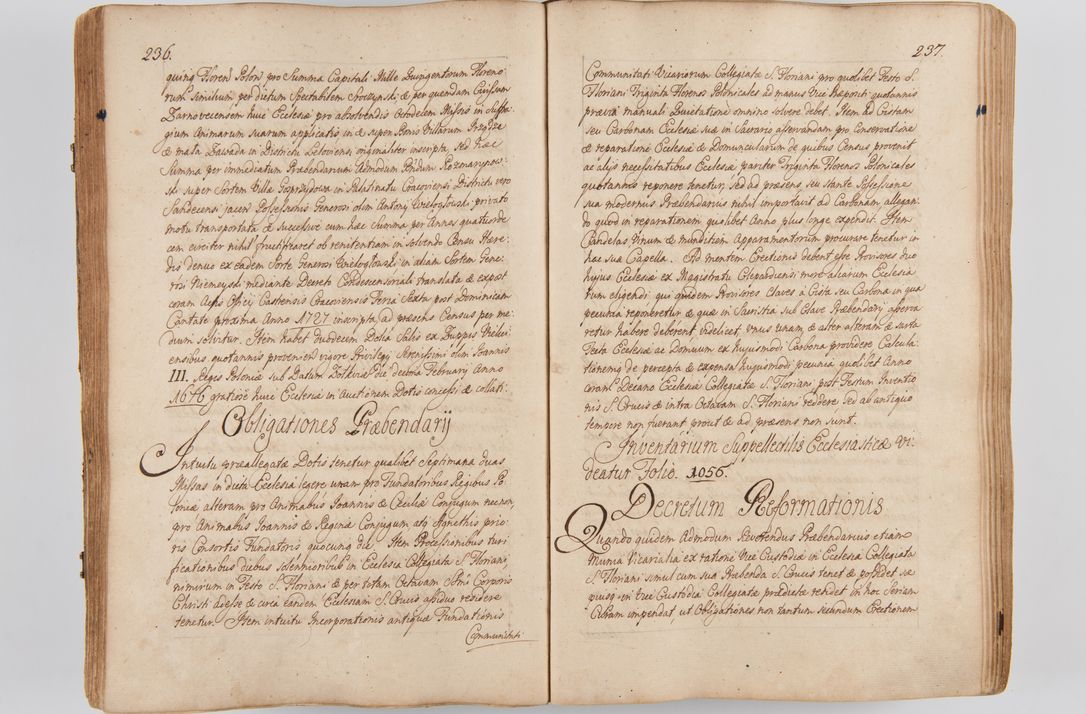 236.
quinq Floren Polon pro Summa Capitali Mille Quingentorum Floreno
rum similium per dictum Spectabilem Szoczynski & per quendam Civissam
Zarnovecensem huic Ecclesia pro absolvendis Octodecim Missis in Suffra
gium Animarum suarum applicatis in & super Bonis Villarum
& mala Zawada in Districtu Leloviensi originaliter inscripta, sed hæc
Summa per immediatum Præbendarium Admodum Rndum Rozmarynow:
ski super Sortem Villæ in Palatinatu Cracoviensi Districtu vero
Sandecensi jacen Possessionis Generosi olim Antony Wielogłowski privato
motu transportata & successive cum hæc Summa per Annos quatuorde
cem circiter nihil fructificaret ob renitentiam in solvendo Censu Hære:
dis denuo ex eadem Sorte Generosi Wielogłowski in aliam Sortem Gene:
rosi Niemeyski mediante Decreto Condescensoriali translata & expost
coram Actis Officij Castrensis Cracoviensis Feria Sexta post Dominicam
Cantate proxima Anno 1727 inscripta ad præsens Census per me:
dium solvitur. Item habet duodecim Dolia Salis ex Zuppis Vielici
ensibus quotannis provenien vigore Privilegij Serenissimi olim Joannis
III. Reges Poloniæ sub Datum Zolkviæ Die decima February Anno
1676 gratiose huic Ecclesiæ in Auctionem Dotis concessi & collati:
Obligationes Præbendarij
Intuitu præallegatæ Dotis tenetur qualibet Septimana duas
Missas in dicta Ecclesia legere unam pro Fundatoribus Regibus Po:
loniæ alteram pro Animabus Joannis & Cæciliæ Conjugum necnon
pro Animabus Joannis & Reginæ Conjugum atq Agnethis prio
ris Consortis Fundatoris quocunq die. Item Processionibus turi
ficationibus diebus solennioribus in Ecclesia Collegiata S. Floriani,
nimirum in Festo S. Floriani & per totam Octavam Smi Corporis
Christi adesse & circa eandem Ecclesiam S. Crucis assiduo residere
tenetur. Item intuitu Incorporationis antiquæ Fundationis
Communitati
237.
Communitati Vicariorum Collegiatæ S. Floriani pro quolibet Festo S.
Floriani Triginta Florenos Polonicales ad manus Vice Præpositi quotannis
prævia manuali Quietatione omnino solvere debet. Item ad Cistam
seu Carbonam Ecclesiæ suæ in Sacrario asservandam pro Conservatione
& reparatione Ecclesiæ & Domuncularum de quibus Census provenit
ac alijs necessitatibus Ecclesiæ pariter Triginta Florenos Polonicales
quotannis reponere tenetur, sed ad præsens, seu stante Possessione
sua modernus Præbendarius nihil importavit ad Carbonam, allegan:
do quod in reparationem qualibet Anno plus longe expendit. Item
Candelas Vinum & munditiam Apparamentorum procurare tenetur in
hac sua Capella. Ad mentem Erectionis Debent esse Provisores duo
hujus Ecclesiæ ex Magistratu Clepardiensi more aliarum Ecclesia
rum eligendi, qui quidem Provisores Claves a Cista seu Carbona in qua
pecunia reponeretur & quæ in Sacristia sub Clave Præbendarij asserva
retur habere deberent, videlicet unus unam, & alter alteram & sarta
Tecta Ecclesiæ ac Domuum ex hujusmodi Carbona providere Calcula:
tionemq de percepta & expensa hujusmodi pecunia quolibet Anno
coram Decano Ecclesiæ Collegiatæ S. Floriani, post Festum Inventio
nis S. Crucis & intra Octavam S. Floriani reddere sed ab antiquo
tempore non fuerant prout & ad præsens non sunt.
Inventarium Suppellectilis Ecclesiasticæ vi:
deatur Folio. 1056.
Decretum Reformationis
Quando quidem Admodum Reverendus Præbendarius etiam
Munia Vicarialia ex ratione Vice Custodiæ in Ecclesia Collegiata
S. Floriani simul cum sua Præbenda S. Crucis tenet & possidet se
eiusq in Vice Custodia Collegiatæ prædictæ rendet in hoc seriam
Curam impendat, ut Obligationes non tantum secundum Erectionem